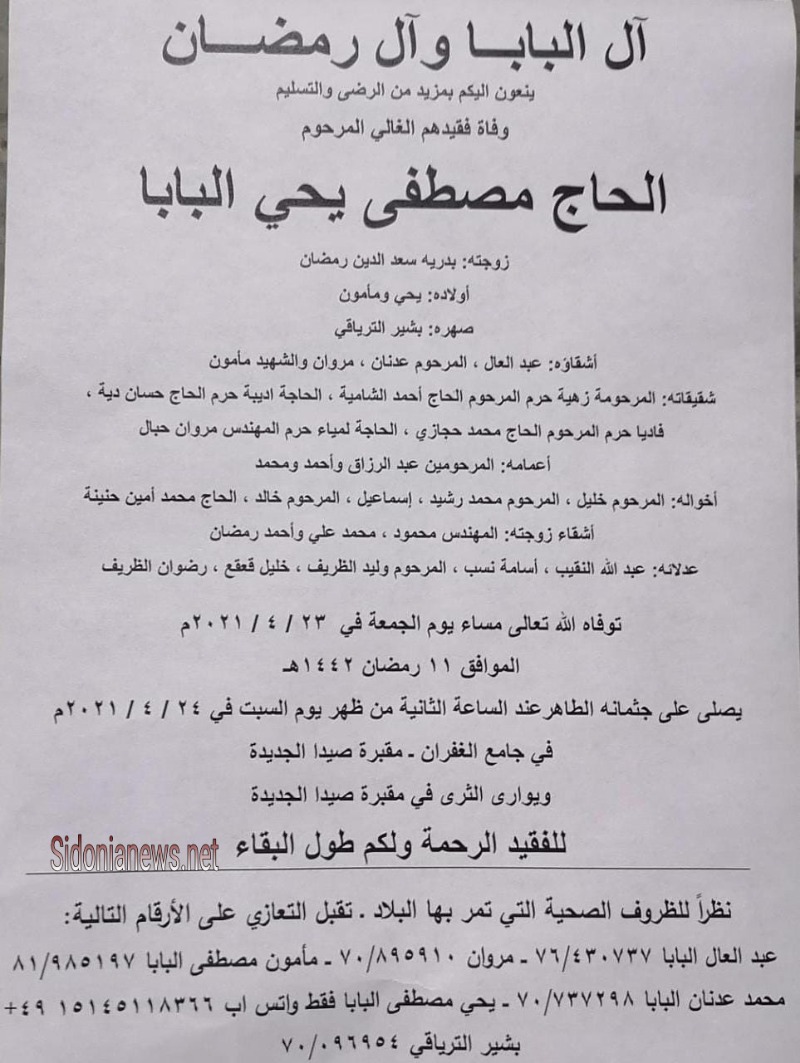 آل البابا وآل رمضان
ينعون اليكم بمزيد من الرضى والتسليم
وفاة فقيدهم الغالي المرحوم
الحاج مصطفى يحي البابا
زوجته: بدريه سعد الدين رمضان
أولاده: يحي ومأمون
صهره: بشير الترياقي
أشقاؤه: عبد العال ، المرحوم عدنان ، مروان والشهيد مأمون
شقيقاته: المرحومة زهية حرم المرحوم الحاج أحمد الشامية ، الحاجة اديبة حرم الحاج حسان دية ،
فاديا حرم المرحوم الحاج محمد حجازي ، الحاجة لمياء حرم المهندس مروان حبال
أعمامه: المرحومين عبد الرزاق وأحمد ومحمد
أخواله: المرحوم خليل ، المرحوم محمد رشيد ، إسماعيل ، المرحوم خالد ، الحاج محمد أمين حنينة
أشقاء زوجته: المهندس محمود ، محمد علي وأحمد رمضان
عدلائه: عبد الله النقيب ، أسامة نسب ، المرحوم وليد الظريف ، خليل قعقع ، رضوان الظريف
توفاه الله تعالى مساء يوم الجمعة في ٢٣ / ٤ / ٢٠٢١م
الموافق ١١ رمضان ١٤٤٢هـ
يصلى على جثمانه الطاهرعند الساعة الثانية من ظهر يوم السبت في ٢٤ / ٤ / ٢٠٢١م
في جامع الغفران - مقبرة صيدا الجديدة
ويوارى الثرى في مقبرة صيدا الجديدة
للفقيد الرحمة ولكم طول البقاء
Sidonianews.net
نظراً للظروف الصحية التي تمر بها البلاد . تقبل التعازي على الأرقام التالية:
عبد العال البابا ٧٦/٤٣٠٧٣٧ - مروان ٧٠/٨٩٥٩١٠ - مأمون مصطفى البابا ٨١/٩٨٥١٩٧
محمد عدنان البابا ٧٠/٧٣٧٢٩٨ - يحي مصطفى البابا فقط واتس اب ١٥١٤٥١١٨٣٦٦ ٤٩+
بشير الترياقي ٧٠/٠٩٦٩٥٤